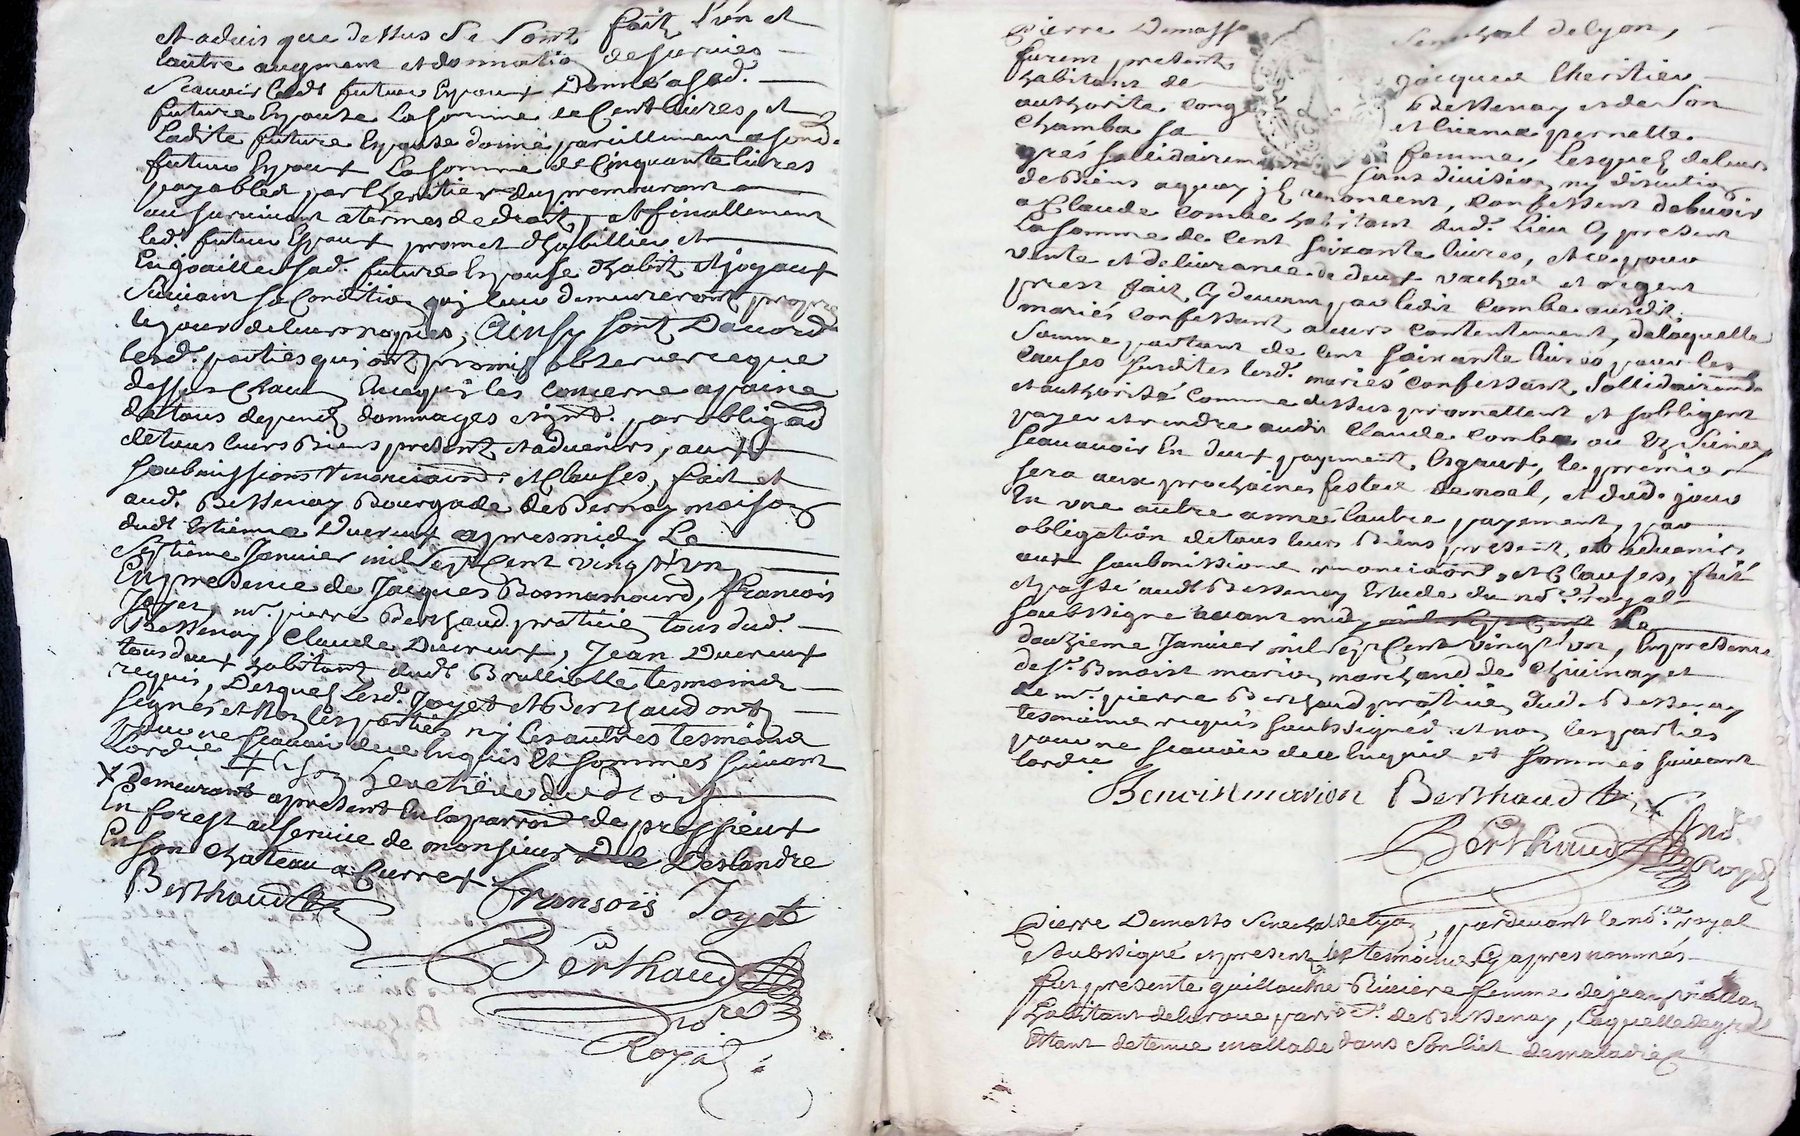 et advis que dessus se sont fait l'un et
l'autre augment et donnation de survies
scavoir ledt futur espoux donne a sad.
future espouse la somme de cent livres, et
ladite future espouse donne pareillement a sond.
futur espoux la somme de cinquante livres
payables par lheritier du premourant
au survivant a termes de droit, et finallement
led. futur espoux promet d'habillier et
enjoailler sad. future espouse d'habit et joyaux
suivant sa condition qui leur demeureront propres
le jour de leurs nopces, Ainsy sont daccord
lesd. parties qui ont promis observer ce que
dessus chacun en ce qui les concerne a paine
de tous depens dommages et jnts. par obligaon
de tous leurs biens presents et advenirs, aux
soubmissions renonciaons. et clauses, fait et
aud. Bessenay Bourgade de Bernay maison
dudt Estienne Ducreux apres midy Le
Septieme Janvier mil sept cent vingt un,
En presence de Jacques Bonnamourd, francois
Joyet, mr. pierre Berthaud praticien tous dud.
Bessenay, Claude Ducreux, Jean Ducreux
tous deux habitant dudt Brullielle tesmoins
requis, Desquels lesd. Joyet et Berthaud ont
signés et non les parties ny les autres tesmoins
pour ne scavoir de ce enquis et sommés suivant
lordre
x demeurant a present en la parroisse de pressieux
En forest au service de monsieur Deslandre
En son chateau a Currex
Berthaud francois Joyet
Berthaud
nore
Royal
pierre Demasso Senechal de lyon,
furent presents Jacques Lheritier
habitant de Bessenay et de son
authorite conge et licence pernette
Chamba sa femme, Lesquels de leurs
grés sollidairement sans division ny discution
de biens a quoy ils renoncent, Confessent debvoir
a Claude Combe habitant dud. lieu Cy present
La somme de cent soixante livres, et ce pour
vente et delivrance de deux vaches et argent
prest fait Cy devant par ledit Combe ausdit.
mariés confessant a leurs contentement, de laquelle
somme partant de cent soixante livres pour les
causes susdites lesd. mariés confessant sollidairement
et authorisé comme dessus promettent et sobligent
payer et rendre audit Claude Combe ou es siens
scavoir En deux payements esgaux, le premier
sera aux prochaines festes de noel, et dud. jour
En une autre année lautre payement, par
obligation de tous leurs biens presents et advenirs
aux soubmissions renonciaons, et clauses, fait
et passé audt Bessenay Estude du nore royal
soubssigne avant midy mil sept cent Le
douzieme Janvier mil sept cent vingt un, En presence
de sr. Benoist marion marchand de Chivinay et
de mr. pierre Berthaud praticien dud. Bessenay
tesmoins requis soubssignés et non les parties
pour ne scavoir de ce enquis et sommés suivant
lordre
Benoist marion Berthaud
Berthaud no.
Royal
Pierre Demasso Senechal de lyon, pardevant le nore royal
soubssigné et present les tesmoins Cy apres nommés
fut presente guillaume Riviere femme de jean viallon
habitant de la roue parroisse. de Bessenay, Laquelle de gré
Estant detenue mallade dans son lict de maladie